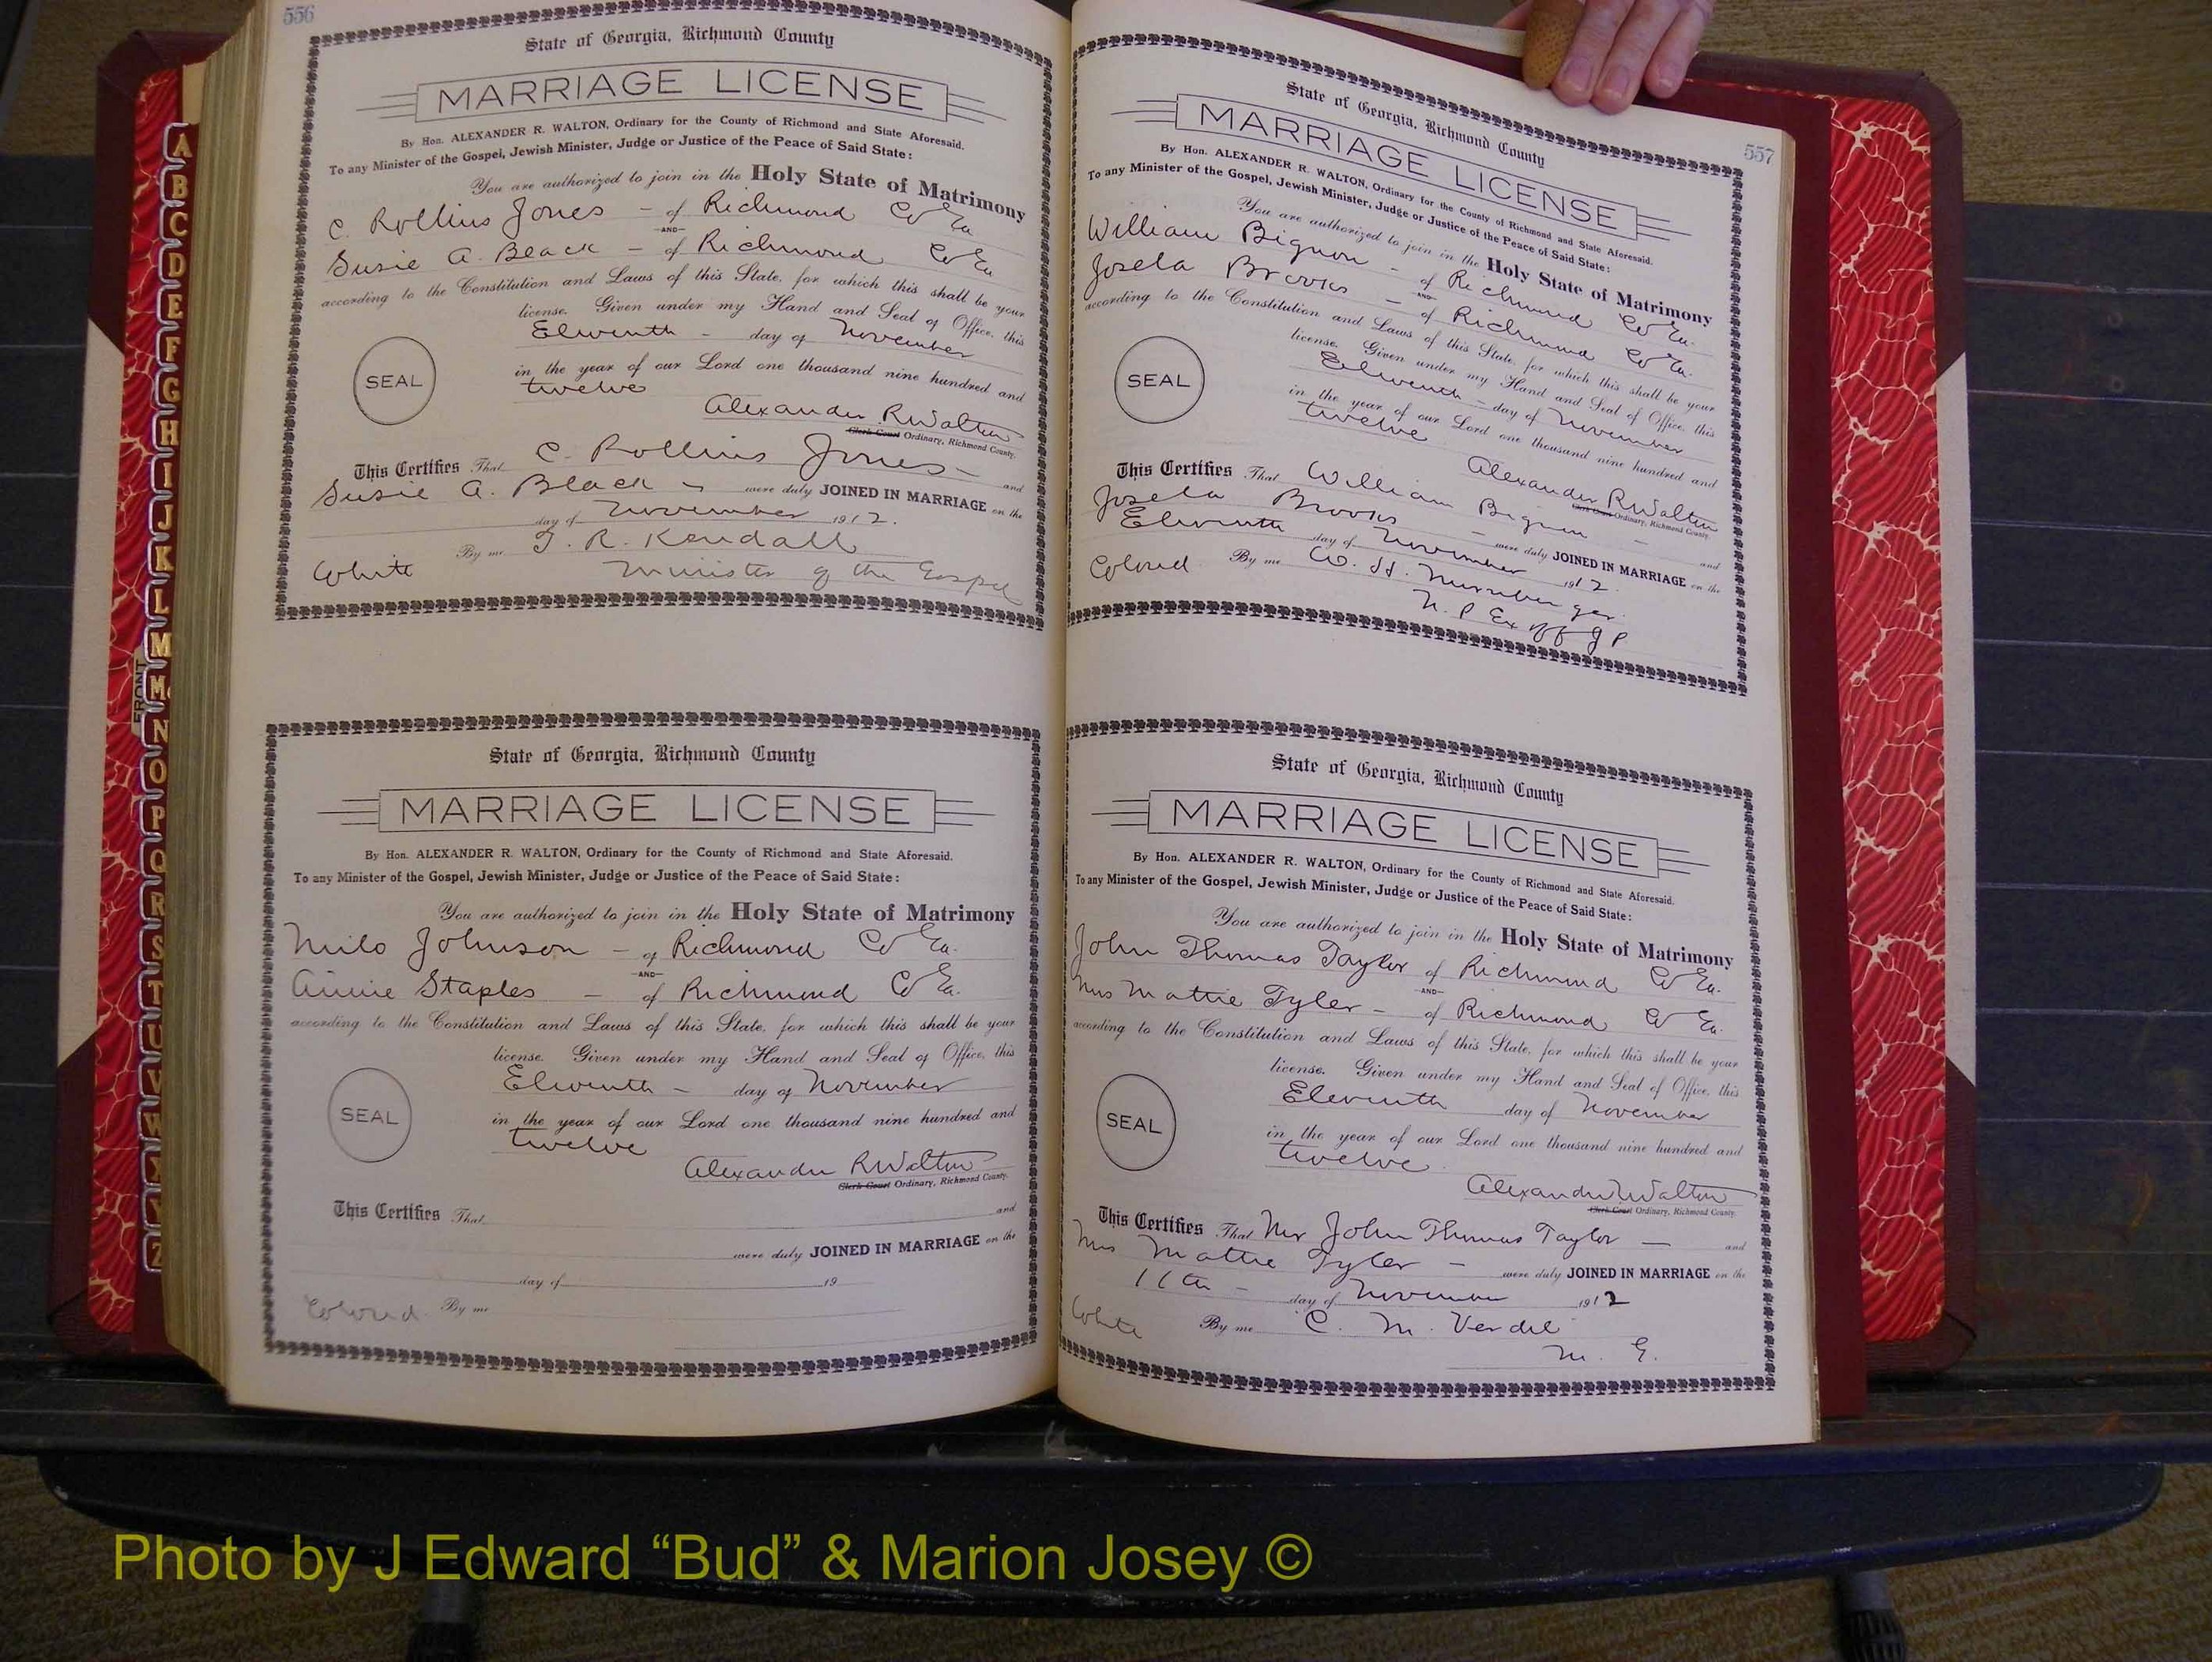 556
State of Georgia, Richmond County
MARRIAGE LICENSE
By Hon. ALEXANDER R. WALTON, Ordinary for the County of Richmond and State Aforesaid.
To any Minister of the Gospel, Jewish Minister, Judge or Justice of the Peace of Said State:
You are authorized to join in the Holy State of Matrimony
C. Rollins Jones - of Richmond Co Ga
-AND-
Susie A. Black - of Richmond Co Ga
according to the Constitution and Laws of this State, for which this shall be your
license. Given under my Hand and Seal of Office, this
Eleventh - day of November
SEAL
in the year of our Lord one thousand nine hundred and
twelve
Alexander R Walton
Clerk Court Ordinary, Richmond County.
This Certifies That C. Rollins Jones - and
Susie A. Black - were duly JOINED IN MARRIAGE on the
day of November 1912.
By me J. R. Kendall
White Minister of the Gospel
State of Georgia, Richmond County
MARRIAGE LICENSE
By Hon. ALEXANDER R. WALTON, Ordinary for the County of Richmond and State Aforesaid.
To any Minister of the Gospel, Jewish Minister, Judge or Justice of the Peace of Said State:
You are authorized to join in the Holy State of Matrimony
Milo Johnson - of Richmond Co Ga.
-AND-
Annie Staples - of Richmond Co Ga.
according to the Constitution and Laws of this State, for which this shall be your
license. Given under my Hand and Seal of Office, this
Eleventh - day of November
SEAL
in the year of our Lord one thousand nine hundred and
twelve
Alexander R Walton
Clerk Court Ordinary, Richmond County.
This Certifies That and
were duly JOINED IN MARRIAGE on the
day of 19
Colored. By me
557
State of Georgia, Richmond County
MARRIAGE LICENSE
By Hon. ALEXANDER R. WALTON, Ordinary for the County of Richmond and State Aforesaid.
To any Minister of the Gospel, Jewish Minister, Judge or Justice of the Peace of Said State:
You are authorized to join in the Holy State of Matrimony
William Bignon - of Richmond Co Ga.
-AND-
Josela Brooks - of Richmond Co Ga.
according to the Constitution and Laws of this State, for which this shall be your
license. Given under my Hand and Seal of Office, this
Eleventh - day of November
SEAL
in the year of our Lord one thousand nine hundred and
twelve
Alexander R Walton
Clerk Court Ordinary, Richmond County.
This Certifies That William Bignon - and
Josela Brooks - were duly JOINED IN MARRIAGE on the
Eleventh day of November 1912.
Colored By me W. H.
N. P Ex off J P
State of Georgia, Richmond County
MARRIAGE LICENSE
By Hon. ALEXANDER R. WALTON, Ordinary for the County of Richmond and State Aforesaid.
To any Minister of the Gospel, Jewish Minister, Judge or Justice of the Peace of Said State:
You are authorized to join in the Holy State of Matrimony
John Thomas Taylor of Richmond Co Ga.
-AND-
Mrs Mattie Tyler - of Richmond Co Ga.
according to the Constitution and Laws of this State, for which this shall be your
license. Given under my Hand and Seal of Office, this
Eleventh day of November
SEAL
in the year of our Lord one thousand nine hundred and
twelve.
Alexander R Walton
Clerk Court Ordinary, Richmond County.
This Certifies That Mr John Thomas Taylor - and
Mrs Mattie Tyler - were duly JOINED IN MARRIAGE on the
11th - day of November 1912
White By me C. M. Verdel
M. G.
A
B
C
D
E
F
G
H
I
J
K
L
M
Mc
N
O
P
Q
R
S
T
U
V
W
X
Y
Z
FRONT
Photo by J Edward “Bud” & Marion Josey ©